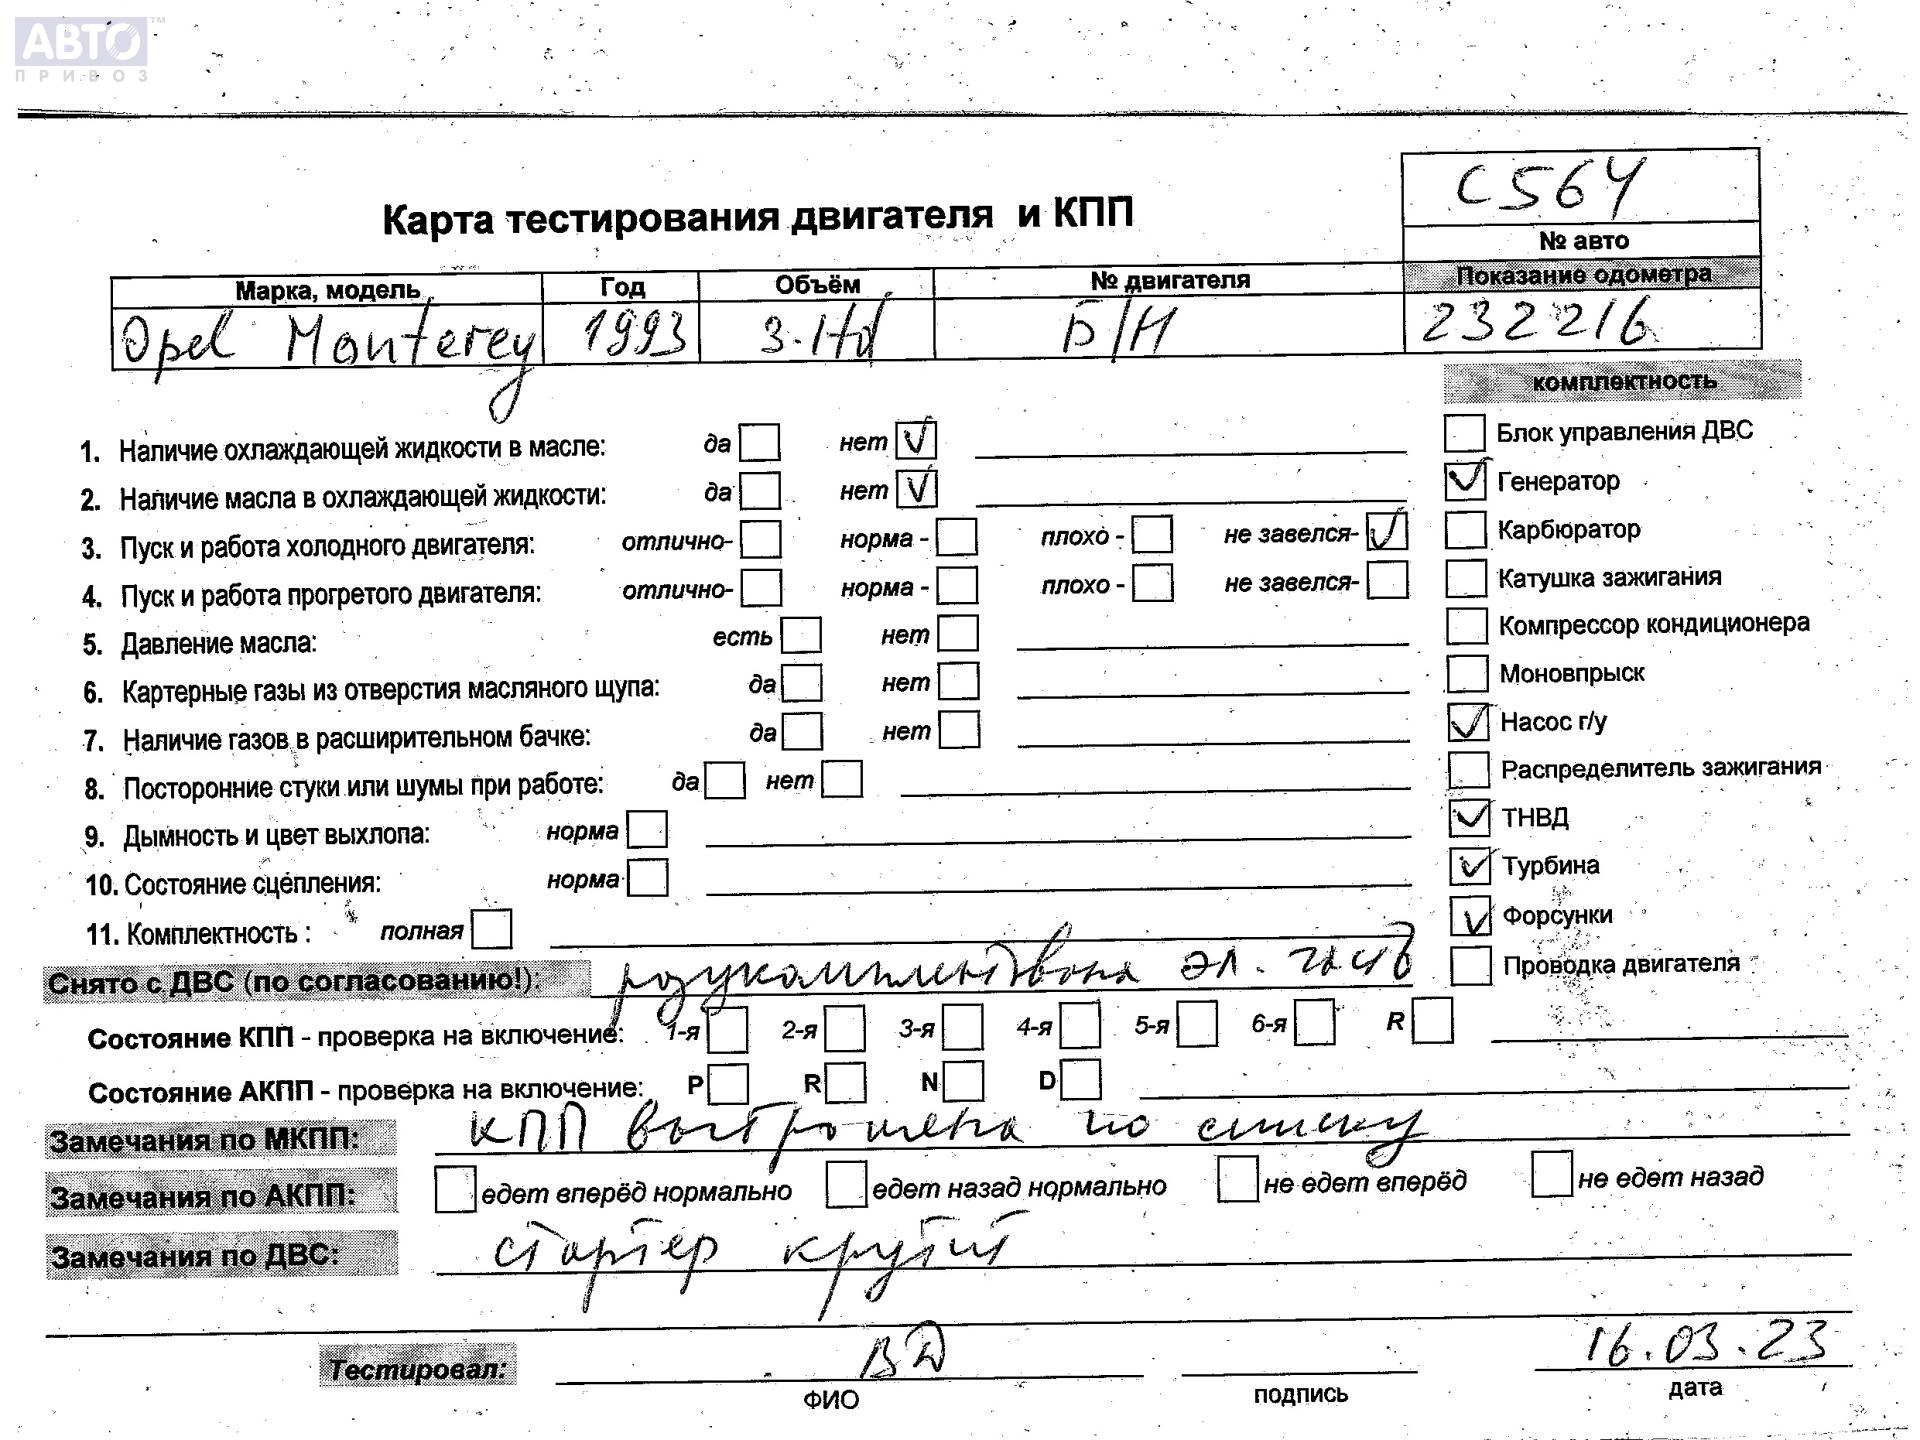 АВТО™
ПРИВОЗ
C564
Карта тестирования двигателя и КПП
№ авто
Марка, модель Год Объём № двигателя Показание одометра
Opel Monterey 1993 3.1td Б/Н 232216
комплектность
1. Наличие охлаждающей жидкости в масле: да нет ✓
Блок управления ДВС
2. Наличие масла в охлаждающей жидкости: да нет ✓
✓ Генератор
3. Пуск и работа холодного двигателя: отлично- норма - плохо - не завелся- ✓
Карбюратор
4. Пуск и работа прогретого двигателя: отлично- норма - плохо - не завелся-
Катушка зажигания
5. Давление масла: есть нет
Компрессор кондиционера
6. Картерные газы из отверстия масляного щупа: да нет
Моновпрыск
7. Наличие газов в расширительном бачке: да нет
✓ Насос г/у
8. Посторонние стуки или шумы при работе: да нет
Распределитель зажигания
9. Дымность и цвет выхлопа: норма
✓ ТНВД
10. Состояние сцепления: норма
✓ Турбина
11. Комплектность : полная
✓ Форсунки
Снято с ДВС (по согласованию!): разукомплектована эл. часть
Проводка двигателя
Состояние КПП - проверка на включение: 1-я 2-я 3-я 4-я 5-я 6-я R
Состояние АКПП - проверка на включение: P R N D
Замечания по МКПП: КПП выстроена по списку
Замечания по АКПП: едет вперёд нормально едет назад нормально не едет вперёд не едет назад
Замечания по ДВС: стартер крутит
Тестировал: ВД 16.03.23
ФИО подпись дата